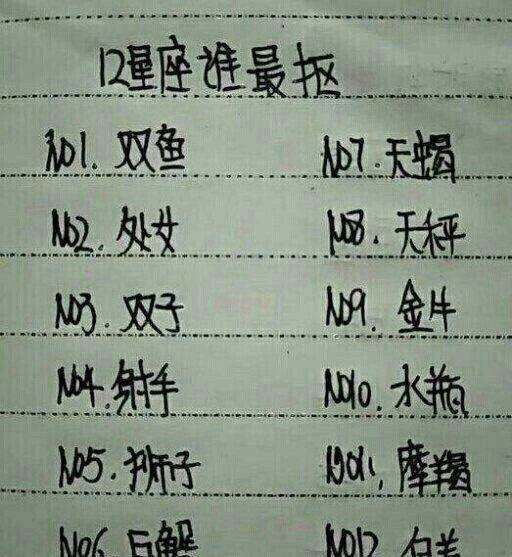 12星座谁最抠
NO1. 双鱼
NO2. 处女
NO3. 双子
NO4. 射手
NO5. 狮子
NO6 巨蟹
NO7. 天蝎
NO8. 天秤
NO9. 金牛
NO10. 水瓶
NO11. 摩羯
NO12 白羊